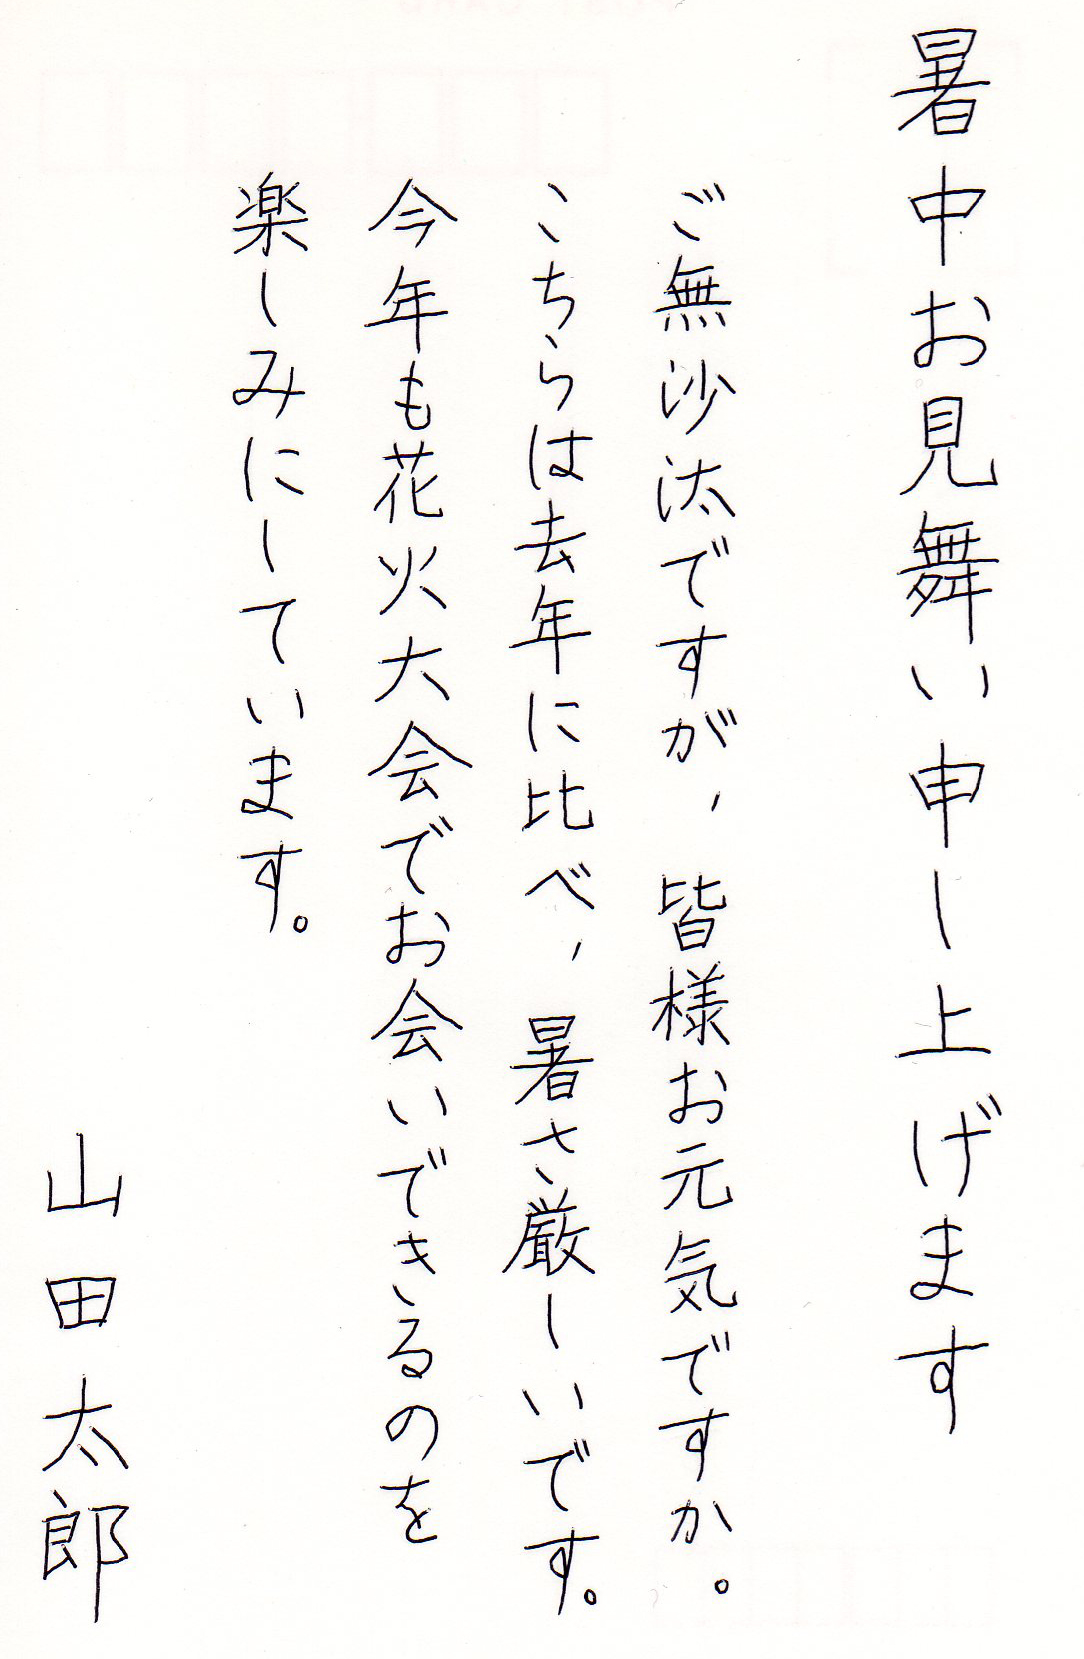 暑中お見舞い申し上げます
ご無沙汰ですが、皆様お元気ですか。
こちらは去年に比べ、暑さ厳しいです。
今年も花火大会でお会いできるのを
楽しみにしています。
山田太郎